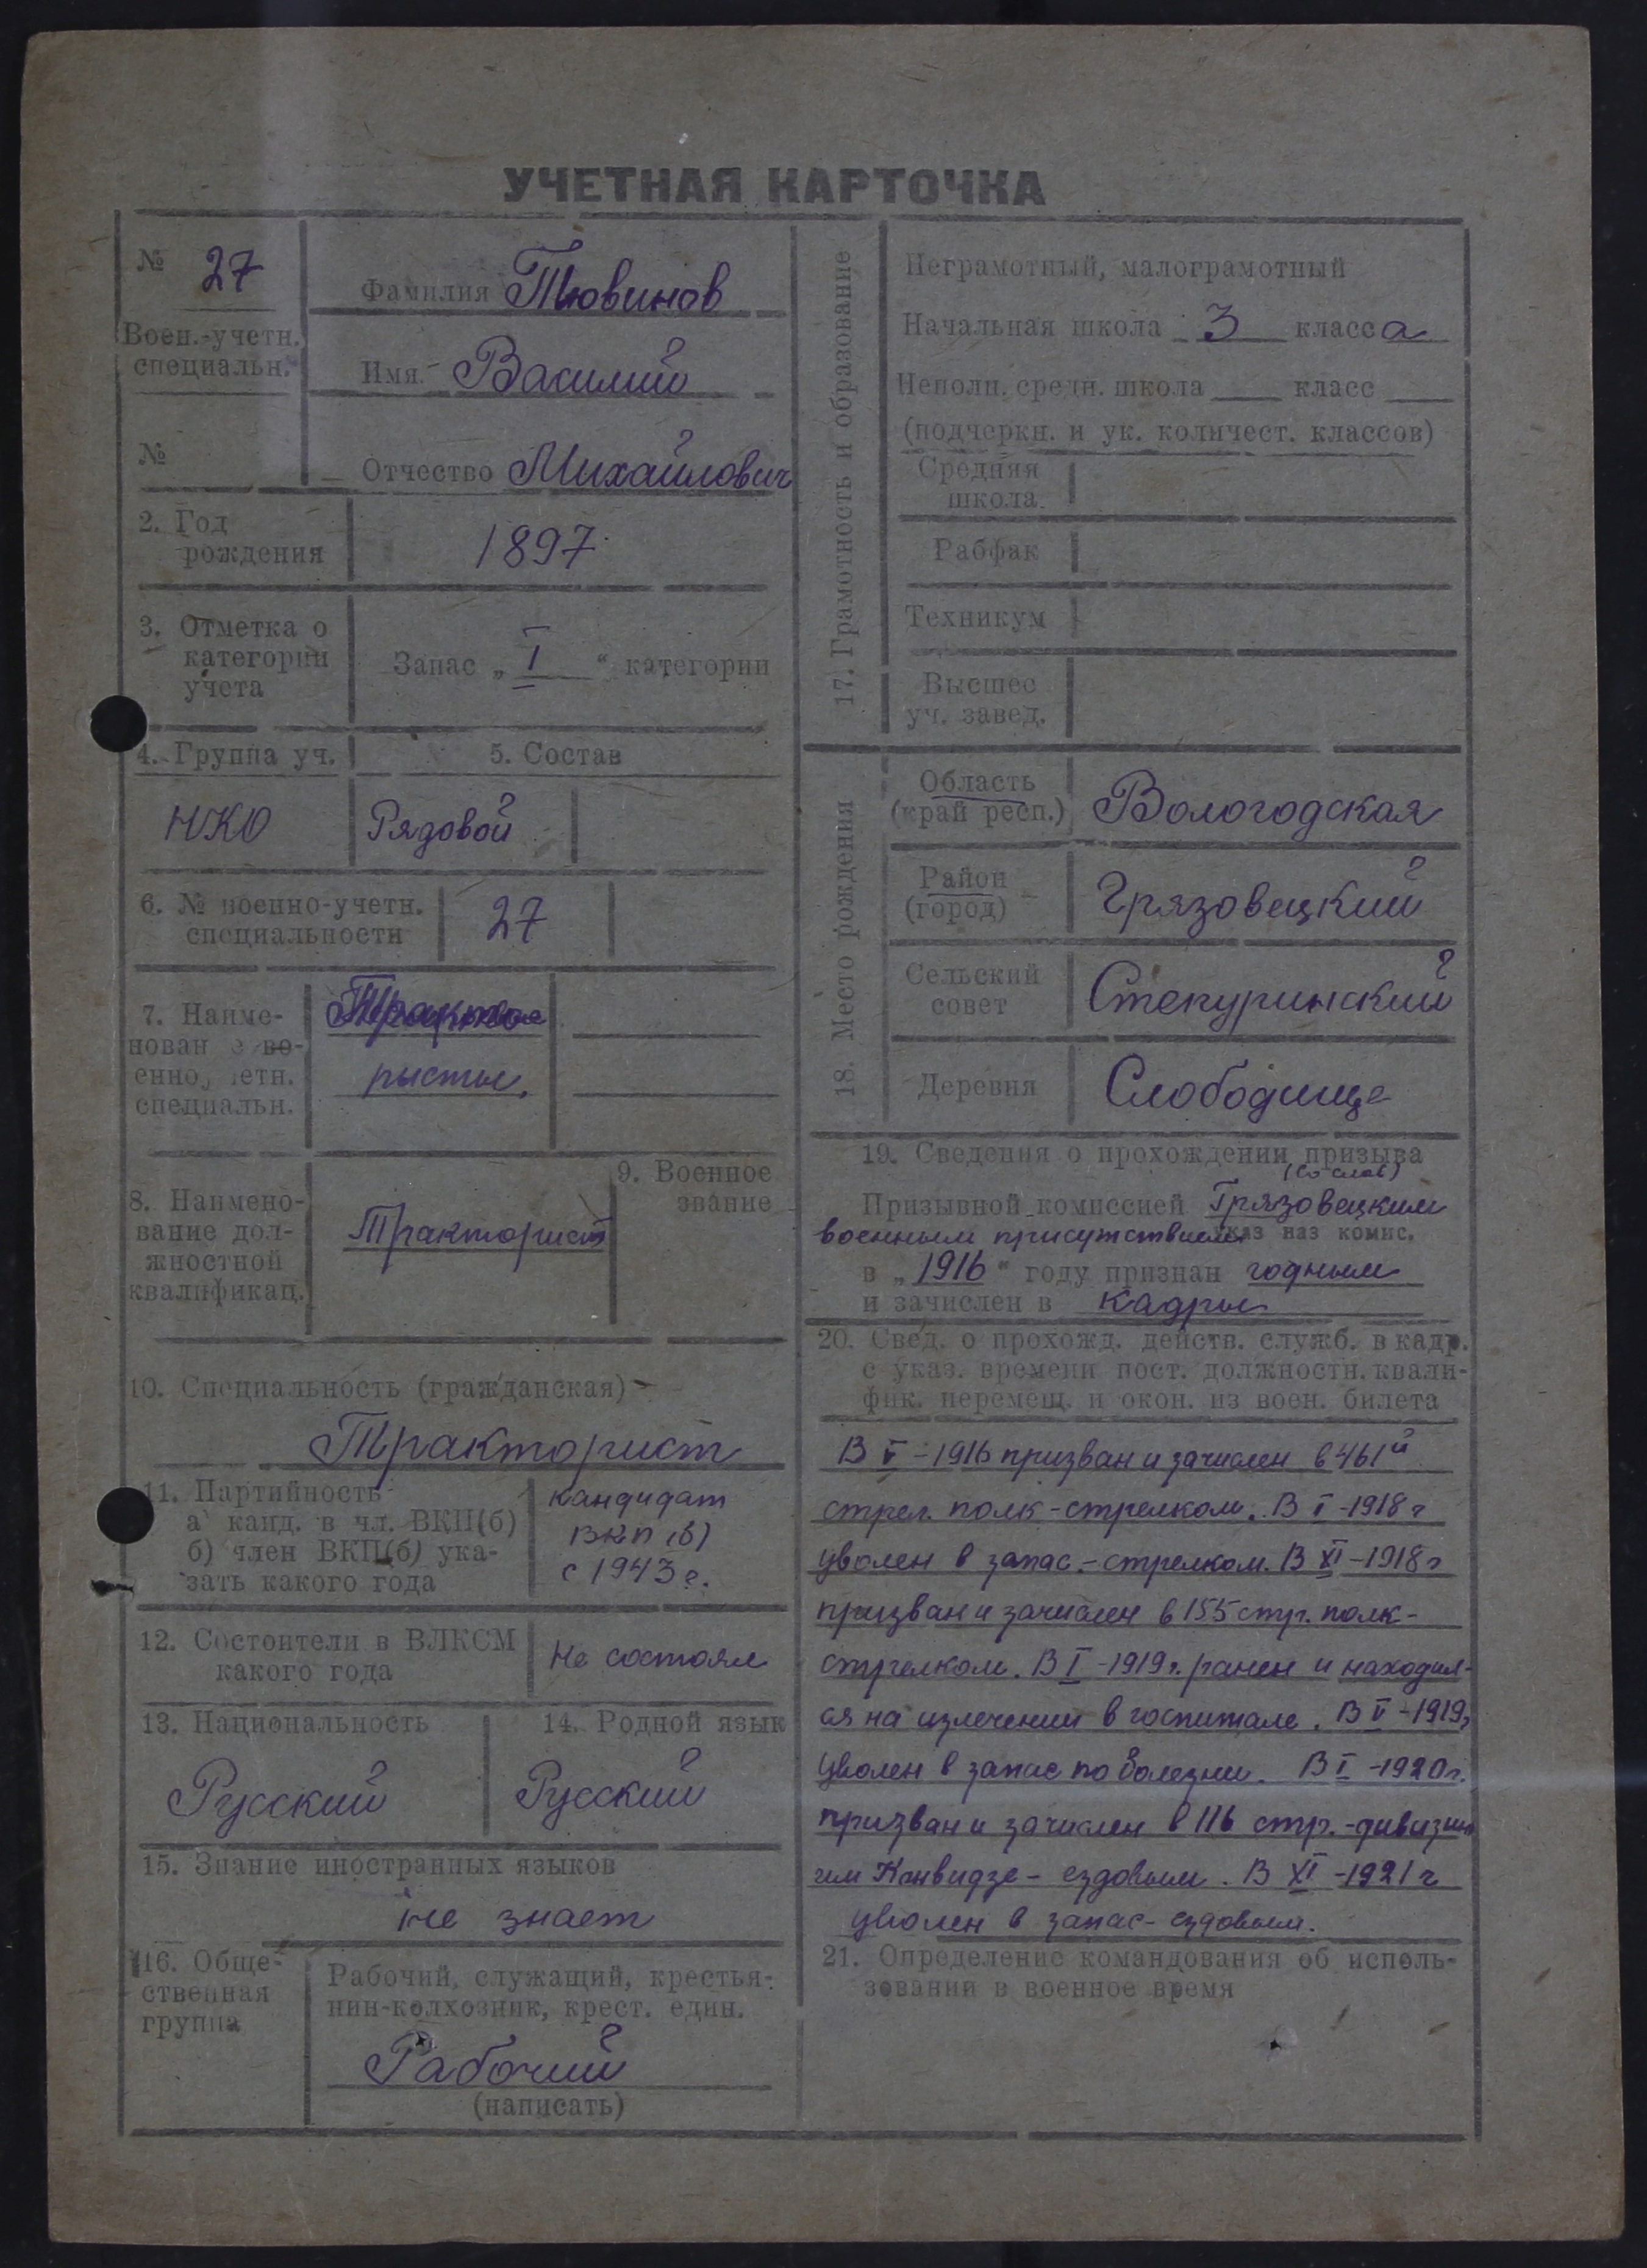 УЧЕТНАЯ КАРТОЧКА
№ 27
Воен.-учетн.
специальн.
№
Фамилия Тювинов
Имя Василий
Отчество Михайлович
2. Год
рождения
1897
3. Отметка о
категории
учета
Запас „ I “ категории
4. Группа уч.
5. Состав
НКО
Рядовой
6. № военно-учетн.
специальности
27
7. Наиме-
специальн.
рысты.
8. Наимено-
вание дол-
жностной
квалификац.
Тракторист
9. Военное
звание
10. Специальность (гражданская)
Тракторист
11. Партийность
а) канд. в чл. ВКП(б)
б) член ВКП(б) ука-
зать какого года
кандидат
ВКП(б)
с 1943 г.
12. Состоител и в ВЛКСМ
какого года
Не состоял
13. Национальность
Русский
14. Родной язык
Русский
15. Знание иностранных языков
не знает
16. Обще-
ственная
группа
Рабочий, служащий, крестья-
нин-колхозник, крест. един.
Рабочий
(написать)
17. Грамотность и образование
Неграмотный, малограмотный
Начальная школа 3 класса
Неполн. средн. школа класс
(подчеркн. и ук. количест. классов)
Средняя
школа
Рабфак
Техникум
Высшее
уч. завед.
18. Место рождения
Область
(край респ.)
Вологодская
Район
(город)
Грязовецкий
Сельский
совет
Стекуринский
Деревня
Слободище
19. Сведения о прохождении призыва
(со слов)
Призывной комиссией Грязовецким
военным присутствием наз комис.
в „1916“ году признан годным
и зачислен в кадры
20. Свед. о прохожд. действ. служб. в кадр.
с указ. времени пост. должностн. квали-
фик. перемещ. и окон. из воен. билета
В V-1916 призван и зачислен в 461й
стрел. полк-стрелком. В I-1918 г
уволен в запас-стрелком. В XI-1918 г
призван и зачислен в 155 стр. полк-
стрелком. В I-1919 г. ранен и находил-
ся на излечении в госпитале. В V-1919г
уволен в запас по болезни. В I-1920 г.
призван и зачислен в 116 стр.-дивизию
им Киквидзе - ездовым. В XI-1921 г
уволен в запас-ездовым.
21. Определение командования об исполь-
зовании в военное время